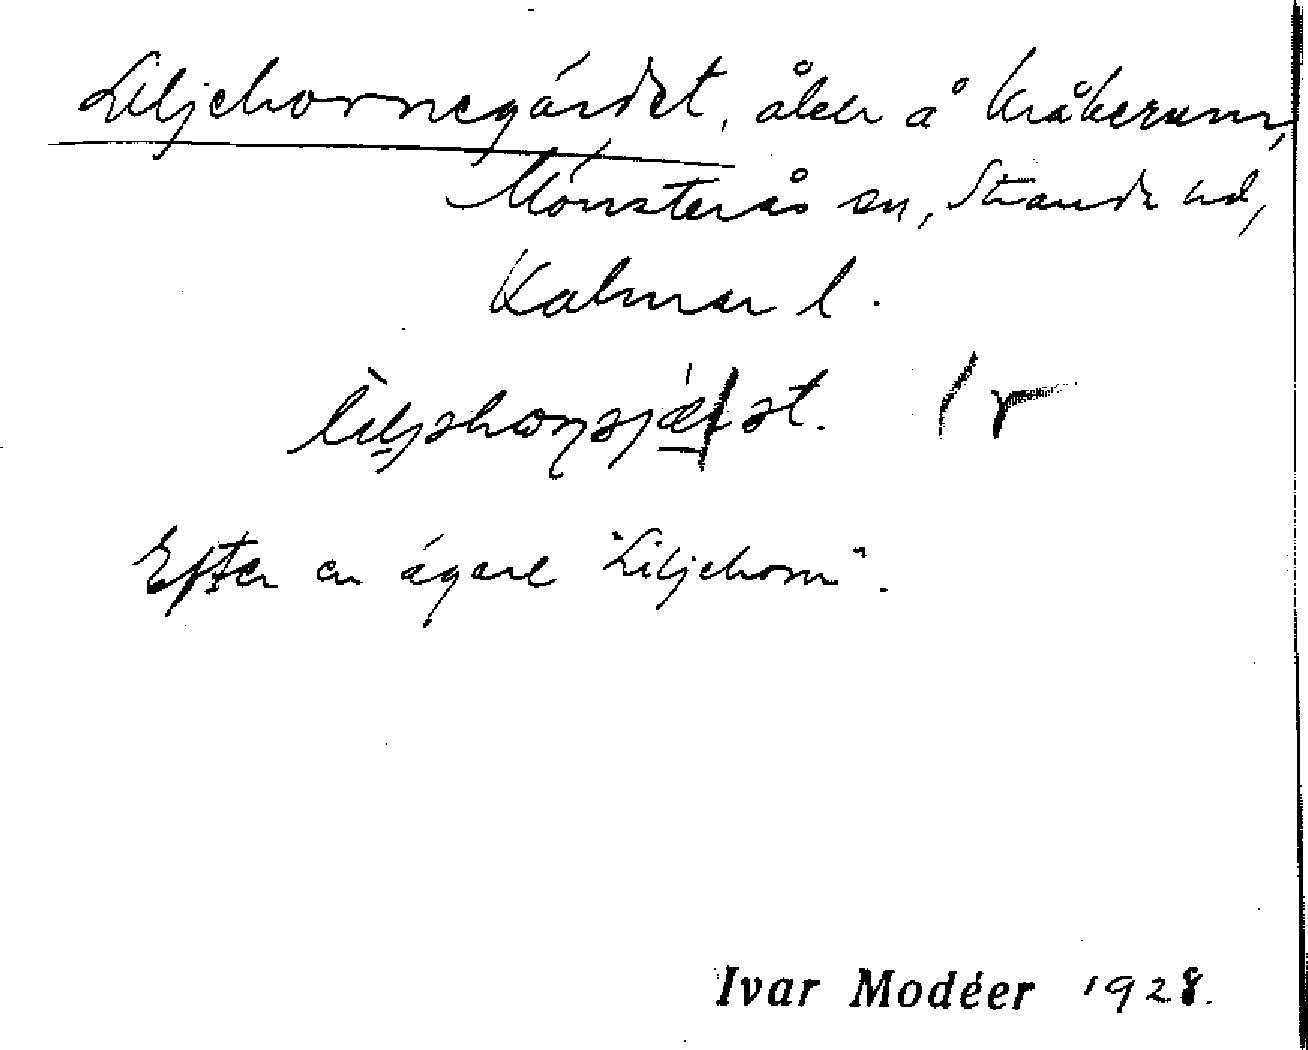 Liljehornegärdet, åker å Kråkerum,
Mönsterås sn, Stranda hd,
Kalmar l.
Efter en ägare "Liljehorn".
Ivar Modéer 1928.